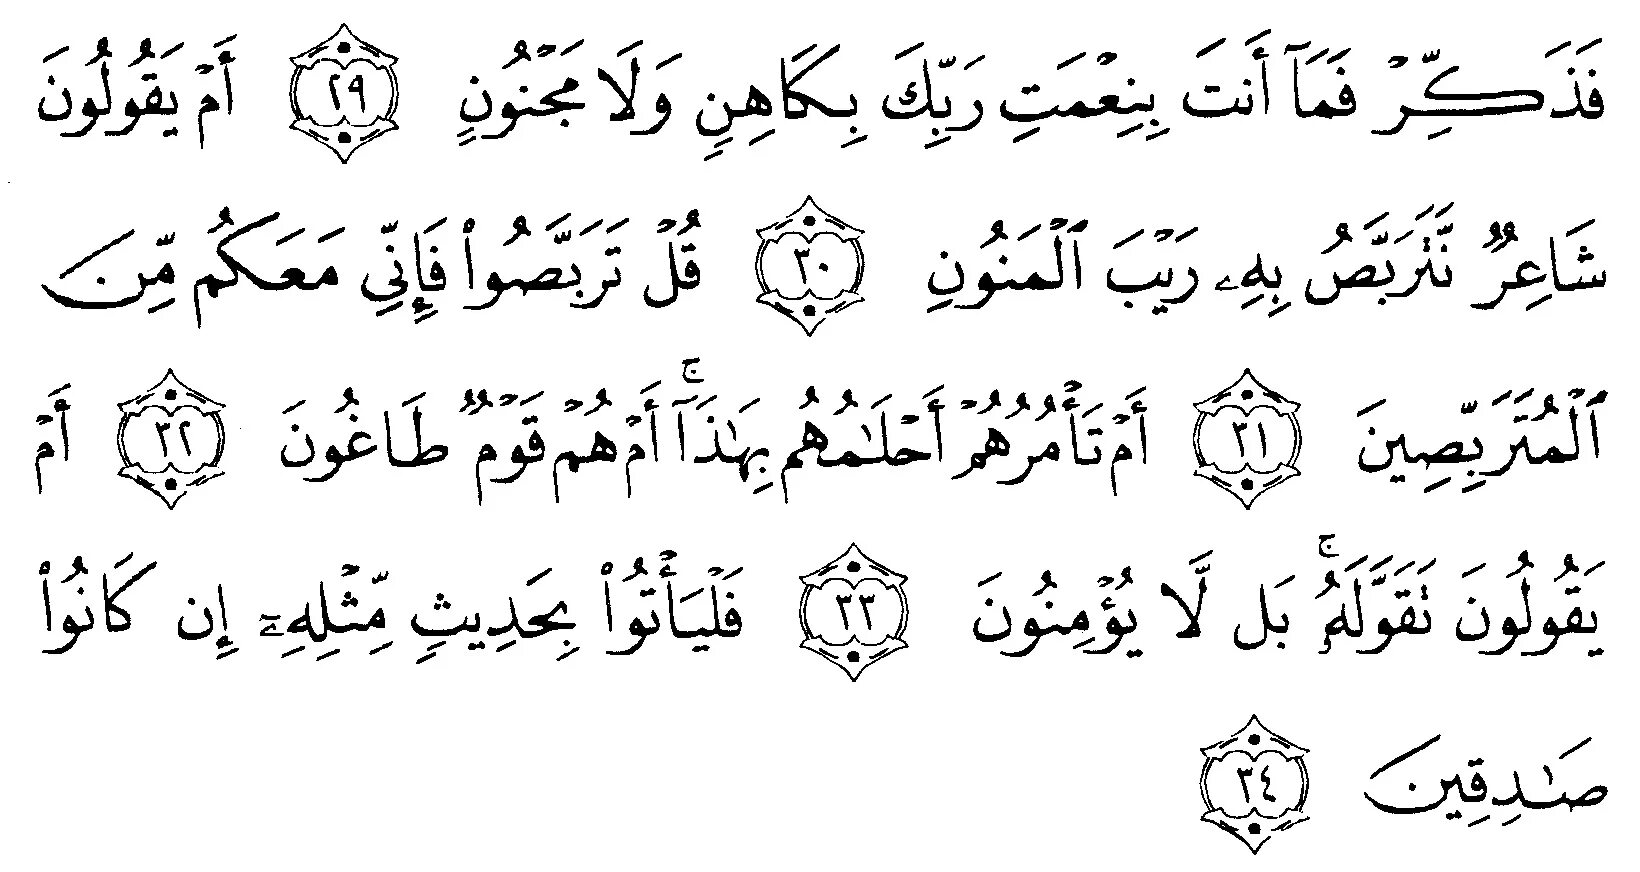 فَذَكِّرۡ فَمَآ أَنتَ بِنِعۡمَتِ رَبِّكَ بِكَاهِنٖ وَلَا مَجۡنُونٍ ٢٩ أَمۡ يَقُولُونَ
شَاعِرٞ نَّتَرَبَّصُ بِهِۦ رَيۡبَ ٱلۡمَنُونِ ٣٠ قُلۡ تَرَبَّصُواْ فَإِنِّي مَعَكُم مِّنَ
ٱلۡمُتَرَبِّصِينَ ٣١ أَمۡ تَأۡمُرُهُمۡ أَحۡلَٰمُهُم بِهَٰذَآۚ أَمۡ هُمۡ قَوۡمٞ طَاغُونَ ٣٢ أَمۡ
يَقُولُونَ تَقَوَّلَهُۥۚ بَل لَّا يُؤۡمِنُونَ ٣٣ فَلۡيَأۡتُواْ بِحَدِيثٖ مِّثۡلِهِۦٓ إِن كَانُواْ
صَٰدِقِينَ ٣٤